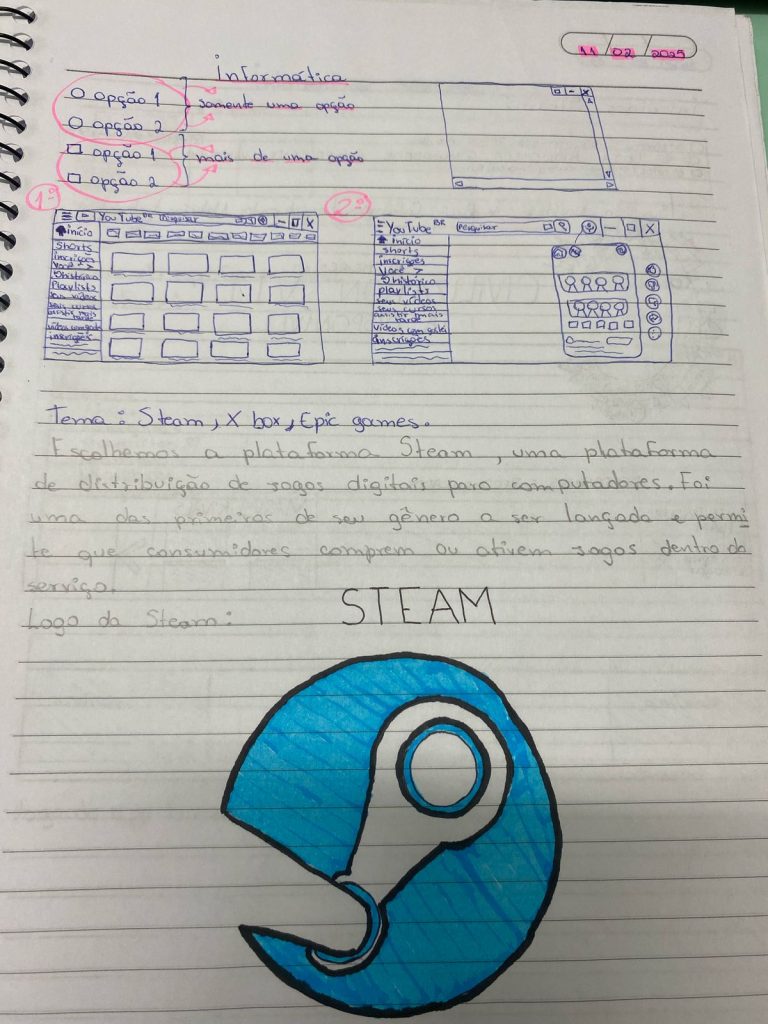 11 / 02 / 2025
informática
opção 1
somente uma opção
opção 2
opção 1
mais de uma opção
opção 2
1º
YouTube BR Pesquisar
X
início
Shorts
inscrições
Você >
histórico
Playlists
seus vídeos
seus cursos
assistir mais
tarde
inscrições
2º
YouTube BR Pesquisar
X
início
shorts
inscrições
Você >
histórico
playlists
seus vídeos
seus cursos
assistir mais
tarde
inscrições
Tema: Steam, X box, Epic games.
Escolhemos a plataforma Steam, uma plataforma
de distribuição de jogos digitais para computadores. Foi
uma das primeiras de seu gênero a ser lançada e permi
te que consumidores comprem ou ativem jogos dentro do
serviço.
Logo da Steam:
STEAM